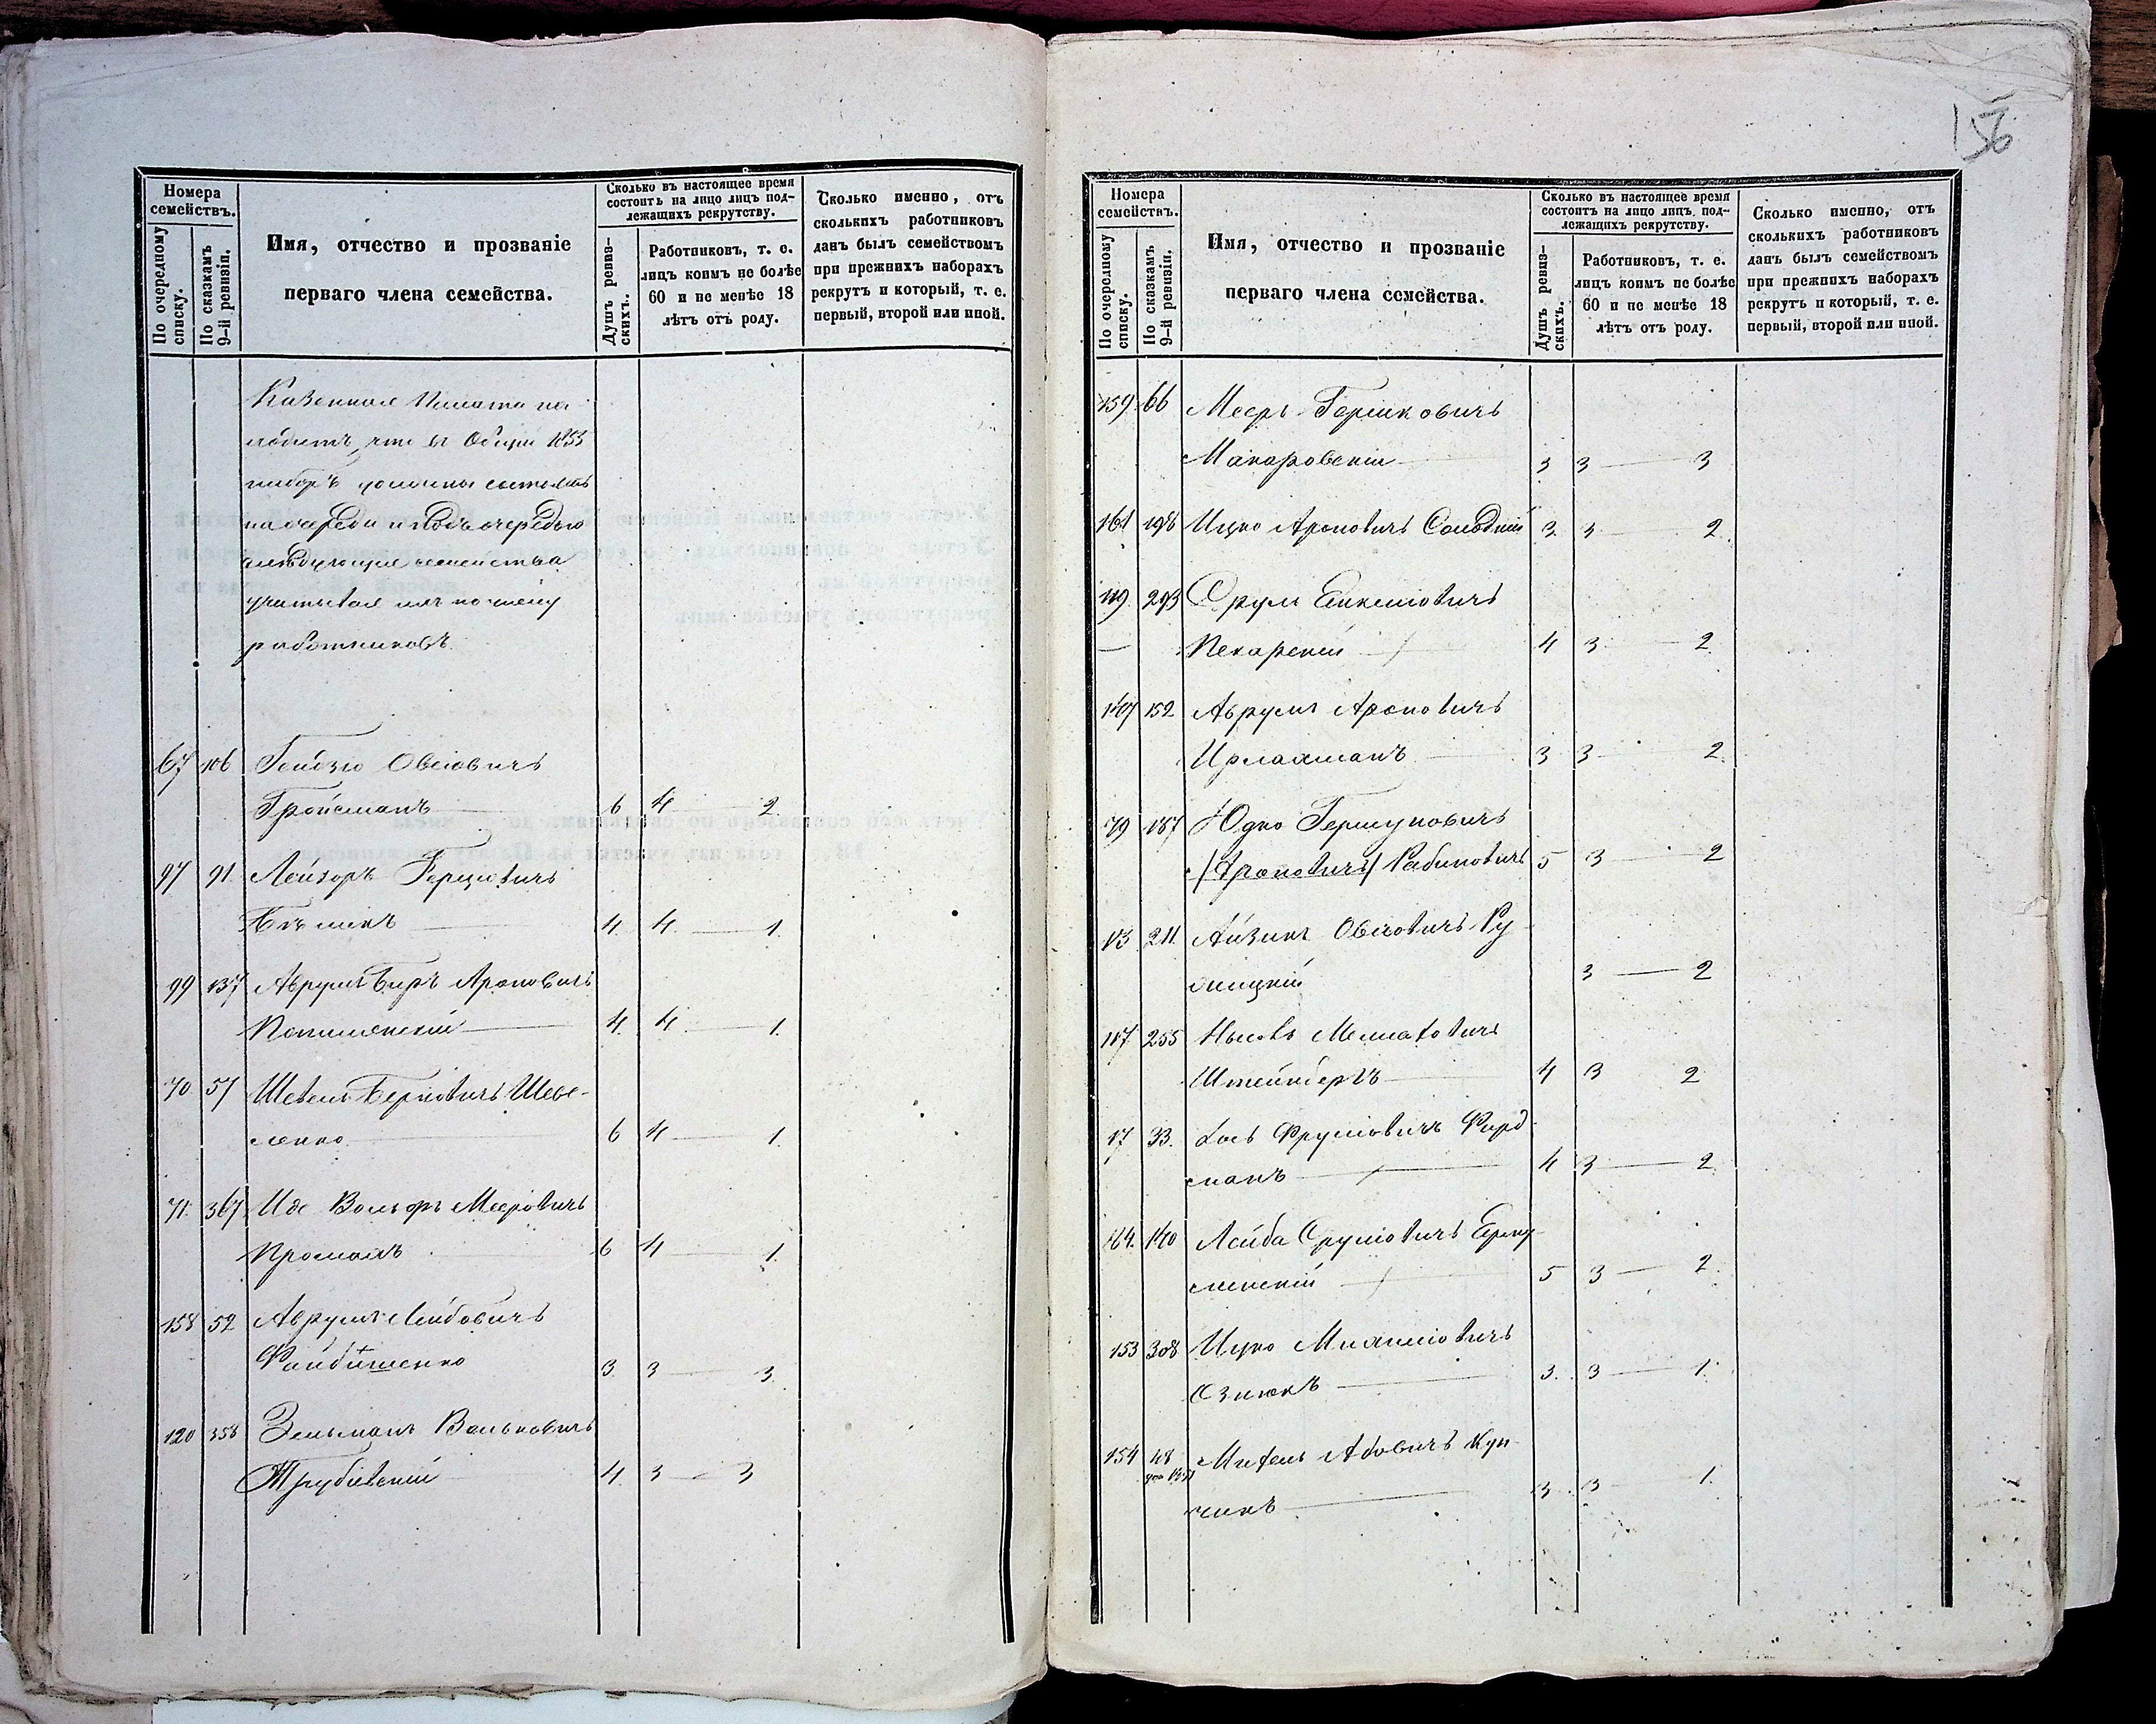 156
Номера
семействъ.
По очередному
списку.
По сказкамъ
9-й ревизіи.
Имя, отчество и прозваніе
перваго члена семейства.
Сколько въ настоящее время
состоитъ на лицо лицъ под-
лежащихъ рекрутству.
Душъ ревиз-
скихъ.
Работниковъ, т. е.
лицъ коимъ не болѣе
60 и не менѣе 18
лѣтъ отъ роду.
Сколько именно, отъ
сколькихъ работниковъ
данъ былъ семействомъ
при прежнихъ наборахъ
рекрутъ и который, т. е.
первый, второй или иной.
Казенная Палата на
что въ 1855
наборъ должны состоять
на очереди и подъ очередью
слѣдующія семейства
учитывая ихъ по числу
работниковъ.
67 106 Овсіовичъ
Гройсманъ 6 4 2.
97 91 Лейзоръ Герцовичъ
4. 4. 1.
99 137 Аврумъ Беръ Ароновичъ
4. 4. 1.
70 57 Шевель Берковичъ Шеве-
ленко 6 4 1.
71. 367 Иде Вольфъ Мееровичъ
6 4 1.
158 52 Аврумъ Лейбовичъ
Файбишенко 3. 3 3.
120 358 Зельманъ Вольковичъ
Трубіевскій 4. 3 3
Номера
семействъ.
По очередному
списку.
По сказкамъ
9-й ревизіи.
Имя, отчество и прозваніе
перваго члена семейства.
Сколько въ настоящее время
состоитъ на лицо лицъ под-
лежащихъ рекрутству.
Душъ ревиз-
скихъ.
Работниковъ, т. е.
лицъ коимъ не болѣе
60 и не менѣе 18
лѣтъ отъ роду.
Сколько именно, отъ
сколькихъ работниковъ
данъ былъ семействомъ
при прежнихъ наборахъ
рекрутъ и который, т. е.
первый, второй или иной.
159 66 Мееръ Гершковичъ
Макаровскій 3 3 3
161 198 Ицко Ароновичъ 3 3 2.
119 293 Срулъ Янкеліовичъ
Пекарскій 4 3 2.
147 152 Аврумъ Ароновичъ
Ирлахманъ 3 3 2.
79 187 Юдко Гершуновичъ
/Ароновичъ/ Рабиновичъ 5 3 2
13 211. Айзикъ Овсіовичъ Ру
лицкій 3 2
117 255 Меллаховичъ
Штейнбергъ 4 3 2
17 33. Срулювичъ
манъ 4 3 2.
164. 140 Лейба Срулювичъ
5 3 2.
153 308 Ицко
3. 3 1.
154 48 Михель Абовичъ Куп-
чикъ 3 3 1.